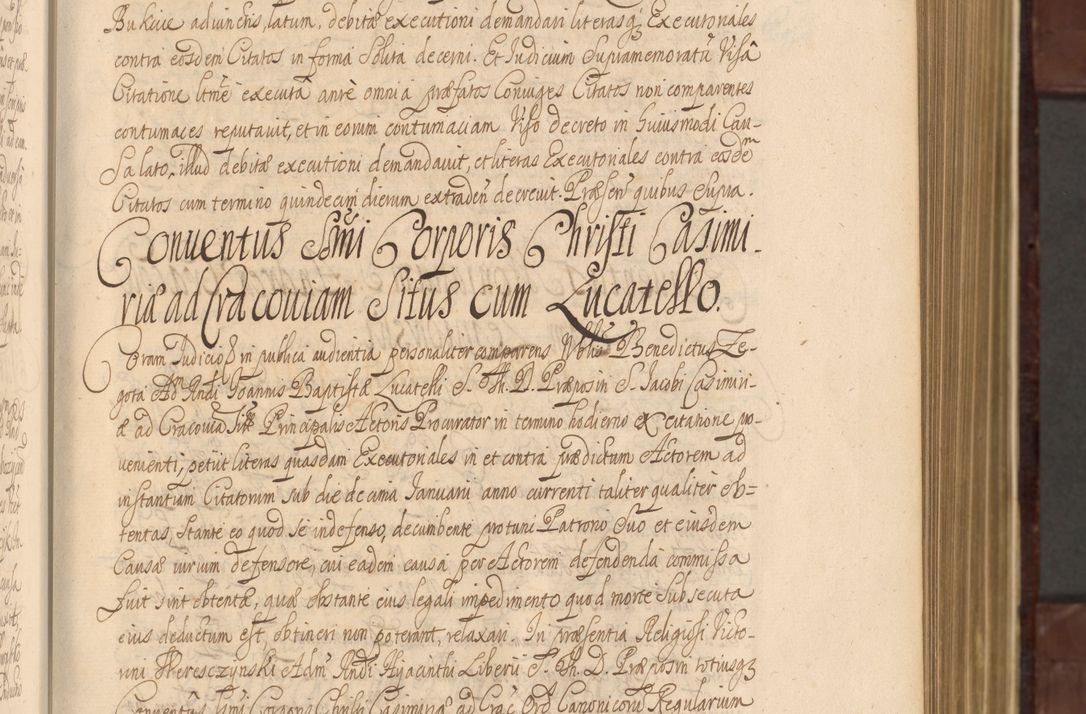 Bukcie adiunctis, latum, debitæ executioni demandari literasqȝ Executoriales
contra eosdem Citatos in forma Solita decerni. Et Iudicium Supramemoratũ Visâ
Citatione ltmẽ executâ antè omnia præfatos Coniuges Citatos non comparentes
contumaces reputauit, et in eorum contumaciam Viso decreto in huiusmodi Cau-
sa lato, illud debitæ executioni demandauit, et literas Executoriales contra eosdem
Citatos cum termino quindecim dierum extradeñ decreuit. Præseñ quibus Supra.
Conuentus Ssmi Corporis Christi Casimi-
riæ ad Cracouiam Situs cum Lucatello.
Coram Iudicio in publica audientia personaliter comparens Nblis Benedictus Ze-
gota Adm Rndi Ioannis Baptistæ Lucatelli S. Th. D. Præpositi S. Iacobi Casimiri-
æ ad Cracouiã Principalis Actoris Procurator in termino hodierno ex citatione po-
uenienti, petiit literas quasdam Executoriales in et contra prædictum Actorem ad
instantiam Citatorum sub die decima Ianuarii anno currenti taliter qualiter ob-
tentas, stante eo quod se indefenso, decumbente protunc Patrono Suo et eiusdem
Causæ iurium defensore, cui eadem causa per Actorem defendenda commissa
fuit sint obtentæ, quæ obstante eius legali impedimento quod morte subsecuta
eius deductum est, obtineri non poterant, relaxari. In præsentia Religiosi Victo-
rini Hereszynski Adm Rndi Hyacinthi Liberii S. Th. D. Præpositi totiusqȝ
Conuentûs Ssmi Corporis Christi Casimiriæ ad Crac Ord Canonicorũ Regularium